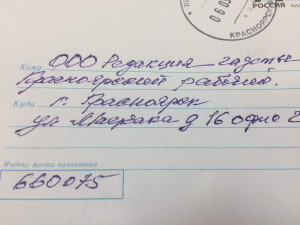 РОССИЯ
060
КРАСНОЯРСК
Кому ООО Редакция газеты
Красноярский рабочий.
Куда г. Красноярск
ул Маерчака д 16 офис 2
Индекс места назначения
660075